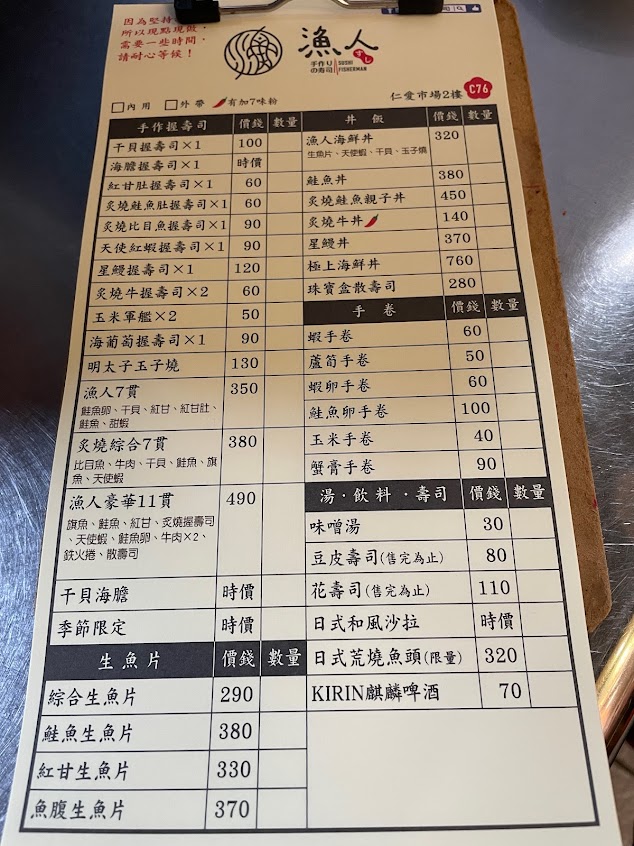 因為堅持
所以現點現做，
需要一些時間，
請耐心等候！
漁人
すし
手作り
の寿司
SUSHI
FISHERMAN
仁愛市場2樓 C76
內用 外帶 有加7味粉
手作握壽司 價錢 數量
干貝握壽司×1 100
海膽握壽司×1 時價
紅甘肚握壽司×1 60
炙燒鮭魚肚握壽司×1 60
炙燒比目魚握壽司×1 90
天使紅蝦握壽司×1 90
星鰻握壽司×1 120
炙燒牛握壽司×2 60
玉米軍艦×2 50
海葡萄握壽司×1 90
明太子玉子燒 130
漁人7貫 350
鮭魚卵、干貝、紅甘、紅甘肚、
鮭魚、甜蝦
炙燒綜合7貫 380
比目魚、牛肉、干貝、鮭魚、旗
魚、天使蝦
漁人豪華11貫 490
旗魚、鮭魚、紅甘、炙燒握壽司
、天使蝦、鮭魚卵、牛肉×2、
鉄火捲、散壽司
干貝海膽 時價
季節限定 時價
生魚片 價錢 數量
綜合生魚片 290
鮭魚生魚片 380
紅甘生魚片 330
魚腹生魚片 370
丼飯 價錢 數量
漁人海鮮丼 320
生魚片、天使蝦、干貝、玉子燒
鮭魚丼 380
炙燒鮭魚親子丼 450
炙燒牛丼 140
星鰻丼 370
極上海鮮丼 760
珠寶盒散壽司 280
手卷 價錢 數量
蝦手卷 60
蘆筍手卷 50
蝦卵手卷 60
鮭魚卵手卷 100
玉米手卷 40
蟹膏手卷 90
湯·飲料·壽司 價錢 數量
味噌湯 30
豆皮壽司(售完為止) 80
花壽司(售完為止) 110
日式和風沙拉 時價
日式荒燒魚頭(限量) 320
KIRIN麒麟啤酒 70